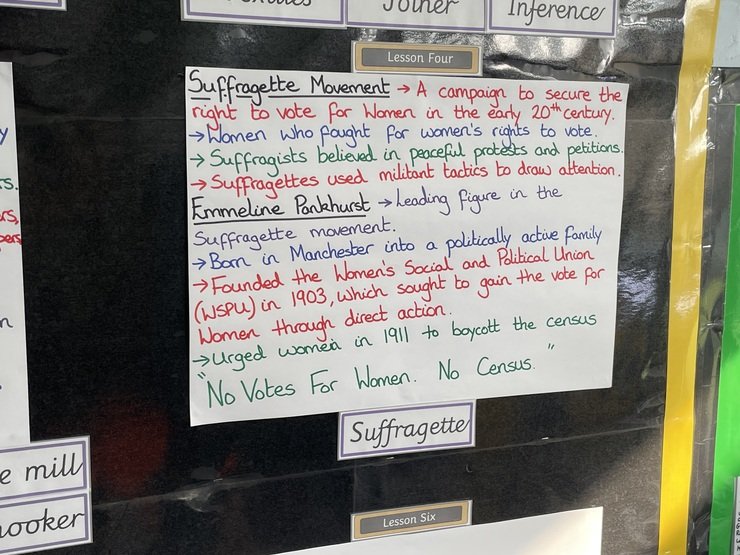 Joiner
Inference
Lesson Four
Suffragette Movement → A campaign to secure the
right to vote for Women in the early 20th century.
→ Women who fought for women's rights to vote.
→ Suffragists believed in peaceful protests and petitions.
→ Suffragettes used militant tactics to draw attention.
Emmeline Pankhurst → Leading figure in the
Suffragette movement.
→ Born in Manchester into a politically active family
→ Founded the Women's Social and Political Union
(WSPU) in 1903, which sought to gain the vote for
Women through direct action.
→ Urged women in 1911 to boycott the census
"No Votes For Women. No Census."
Suffragette
e mill
ooker
Lesson Six